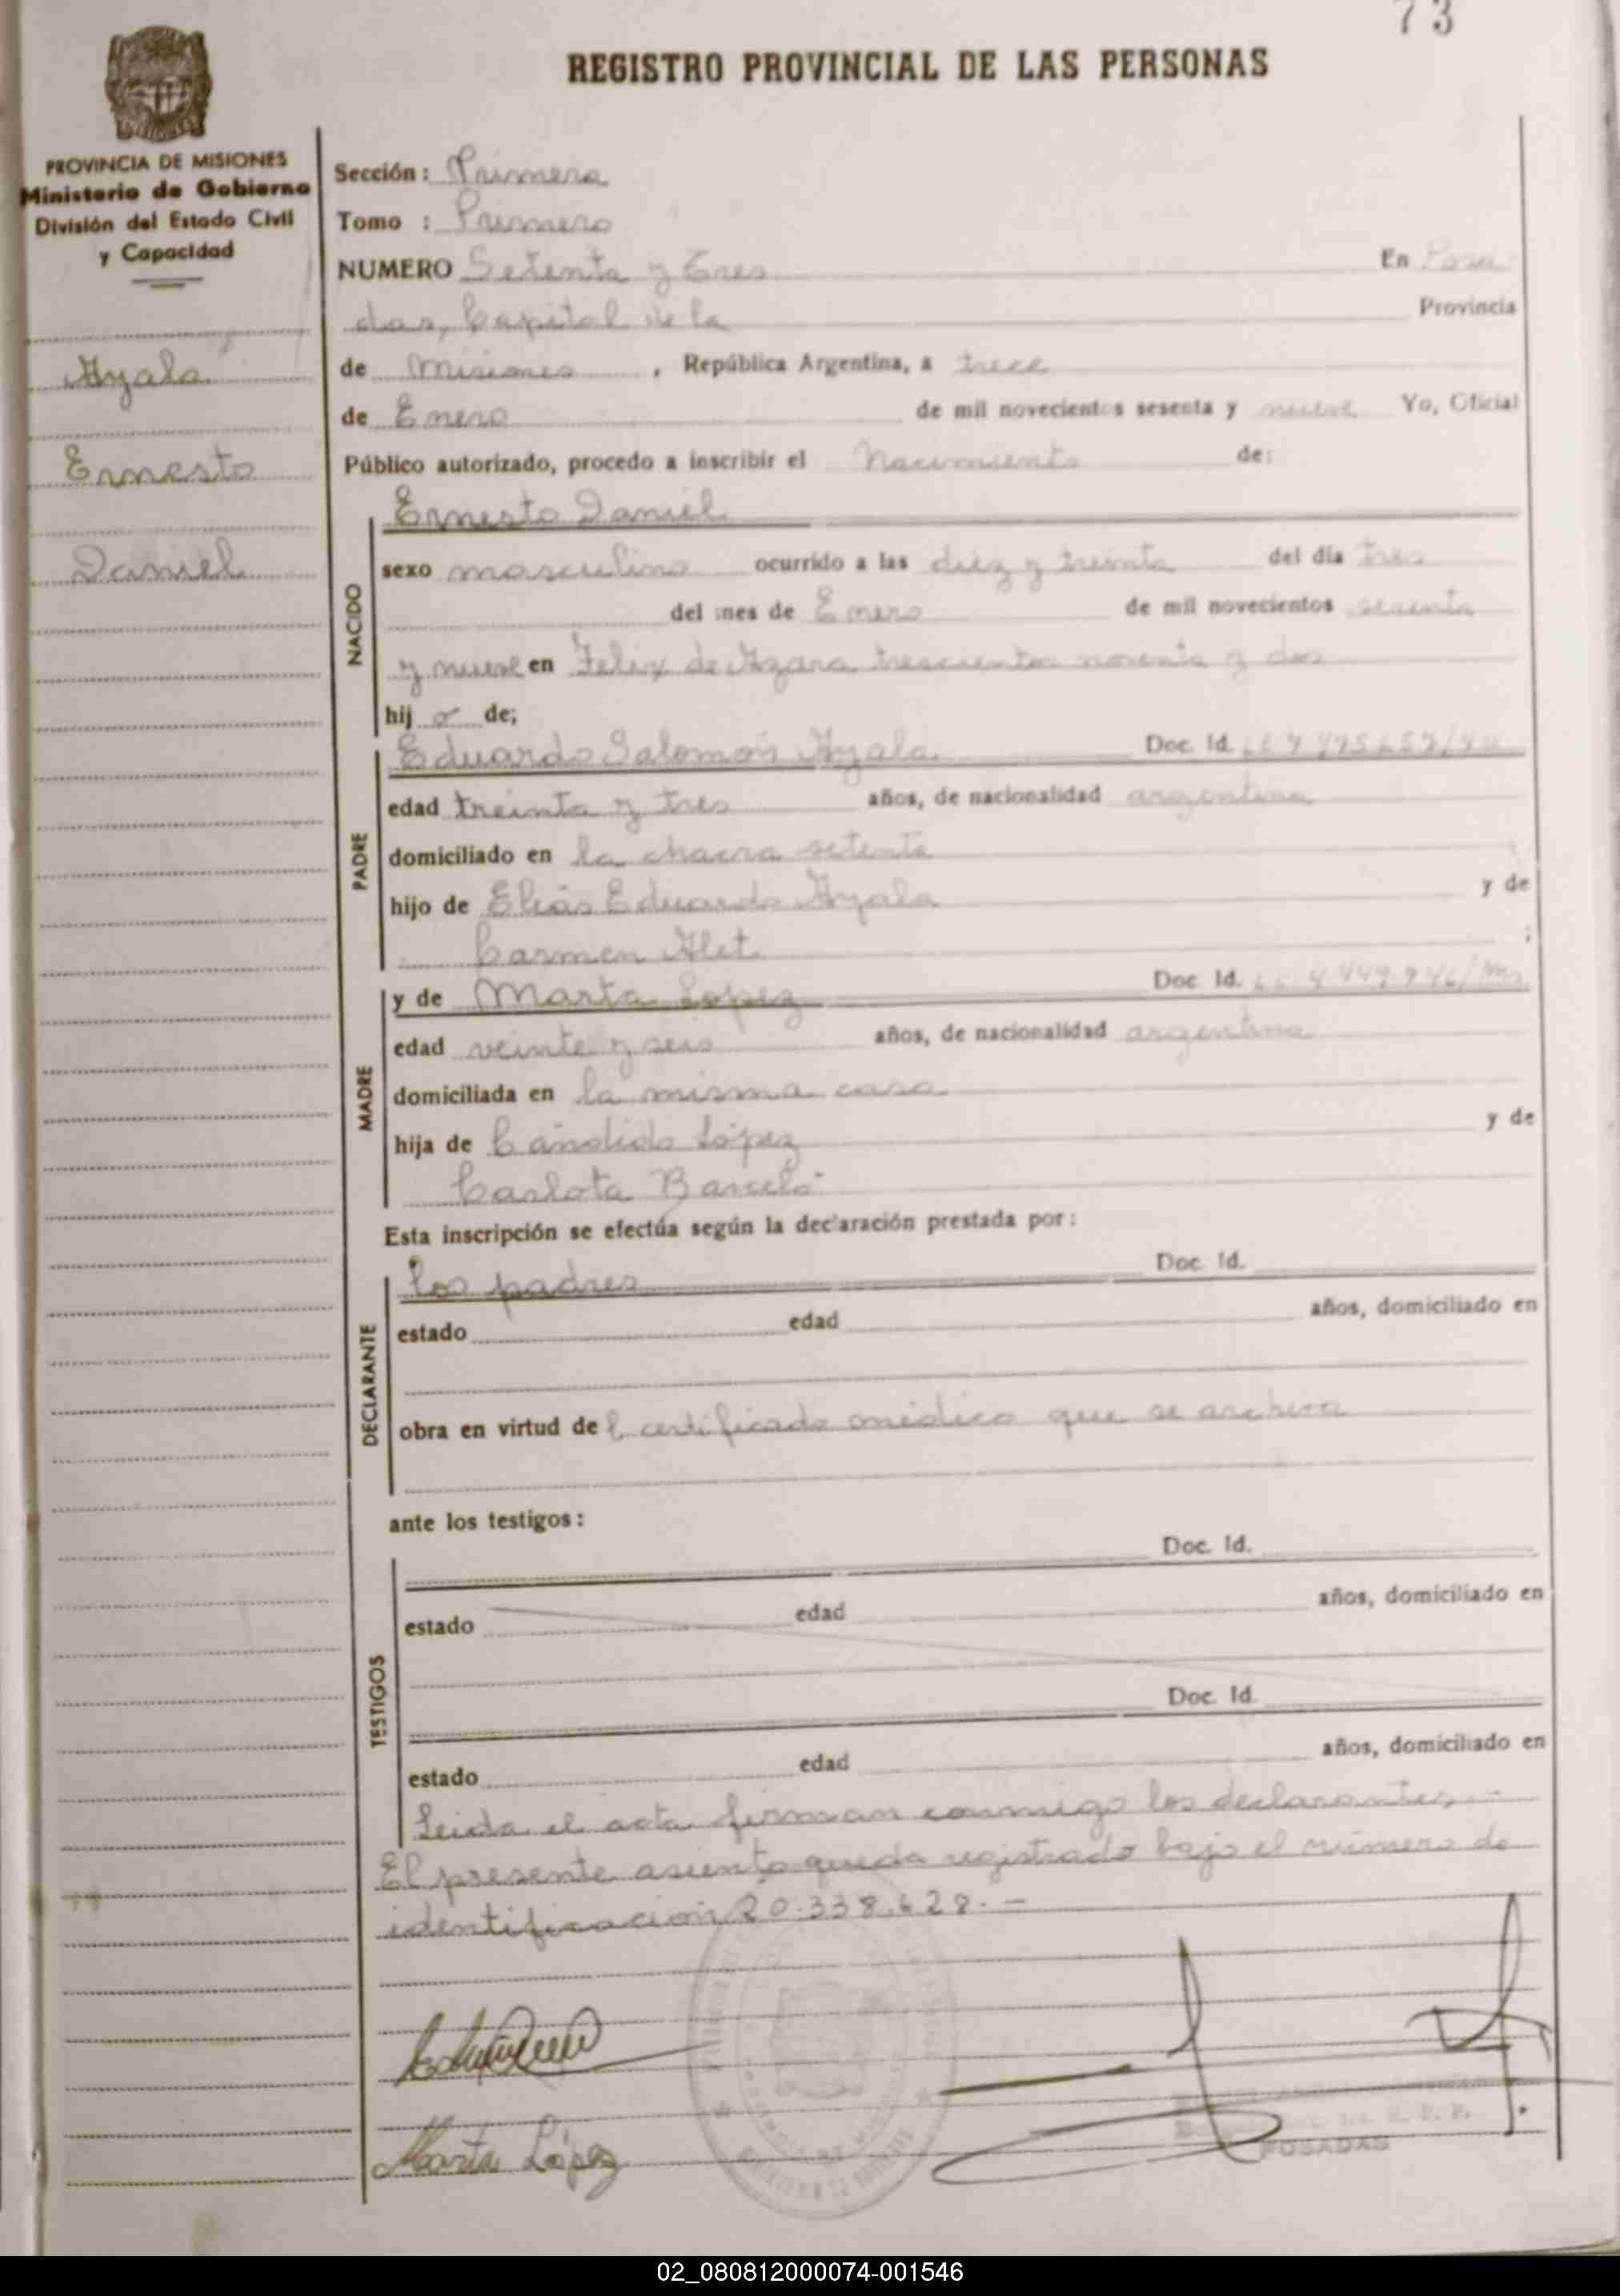 73
REGISTRO PROVINCIAL DE LAS PERSONAS
PROVINCIA DE MISIONES
Ministerio de Gobierno
División del Estado Civil
y Capacidad
Ayala
Ernesto
Daniel
Sección: Primera
Tomo : Primero
NUMERO Setenta y Tres En Posa
das, Capital de la Provincia
de Misiones, República Argentina, a trece
de Enero de mil novecientos sesenta y nueve Yo, Oficial
Público autorizado, procedo a inscribir el Nacimiento de:
NACIDO
Ernesto Daniel
sexo masculino ocurrido a las diez y treinta del día tres
del mes de Enero de mil novecientos sesenta
y nueve en Felix de Azara trescientos noventa y dos
hijo de;
PADRE
Eduardo Salomón Ayala Doc. Id.
edad treinta y tres años, de nacionalidad argentina
domiciliado en la chacra setenta
hijo de Elías Eduardo Ayala y de
Carmen Alet ;
MADRE
y de Marta López Doc. Id.
edad veinte y seis años, de nacionalidad argentina
domiciliada en la misma casa
hija de Cándido López y de
Carlota Barceló
Esta inscripción se efectúa según la declaración prestada por:
DECLARANTE
los padres Doc. Id.
estado edad años, domiciliado en
obra en virtud del certificado médico que se archiva
ante los testigos:
TESTIGOS
Doc. Id.
estado edad años, domiciliado en
Doc. Id.
estado edad años, domiciliado en
Leida el acta firman conmigo los declarantes.-
El presente asiento queda registrado bajo el número de
identificación 20.338.628.-
Marta López
POSADAS
02_080812000074-001546